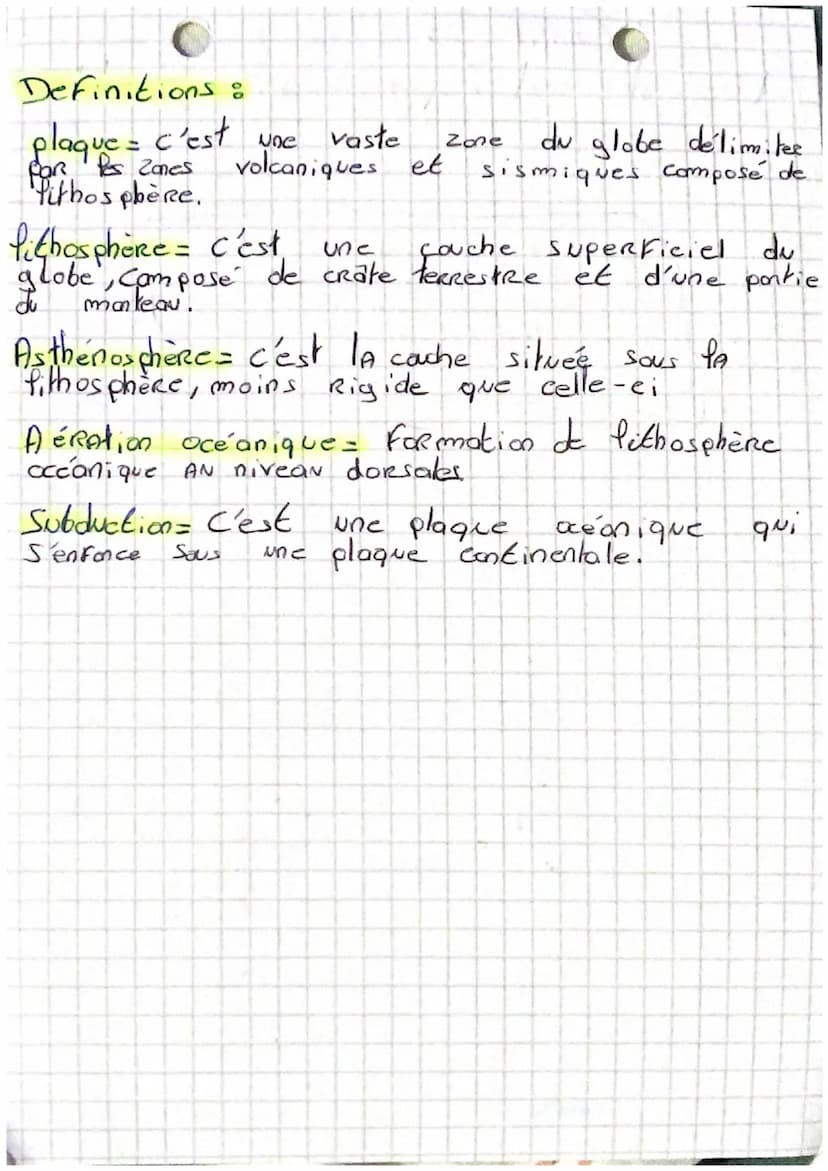 Definitions :
plaque = c'est une vaste zone du globe délimitee
par les zones volcaniques et sismiques composé de
lithosphère.
lithosphère = c'est une couche superficiel du
globe, composé de crate terrestre et d'une partie
du manteau.
Asthénosphère = c'est la cauche située sous la
lithosphère, moins rigide que celle-ci
Aération océanique = formation de lithosphère
océanique au niveau dorsales
Subduction = C'est une plaque océanique qui
s'enfonce sous une plaque continentale.